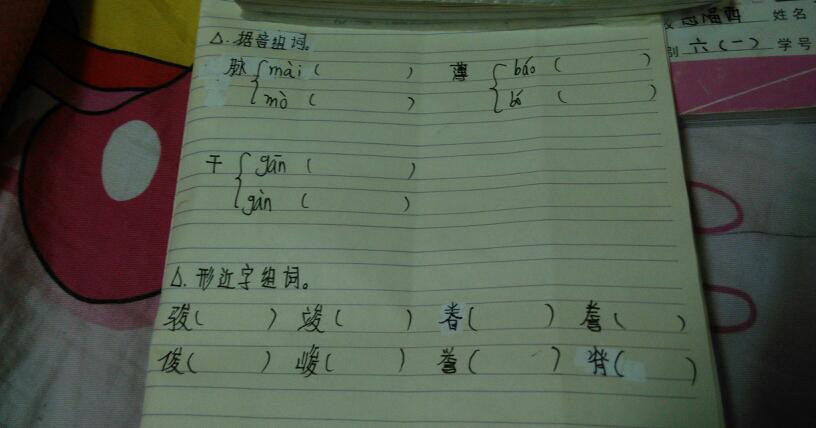 姓名
别 六(一) 学号
△. 据音组词。
脉 { mài ( ) 薄 { báo ( )
mò ( ) bó ( )
干 { gān ( )
gàn ( )
△. 形近字组词。
骏( ) 竣( ) ( ) ( )
俊( ) 峻( ) ( ) ( )